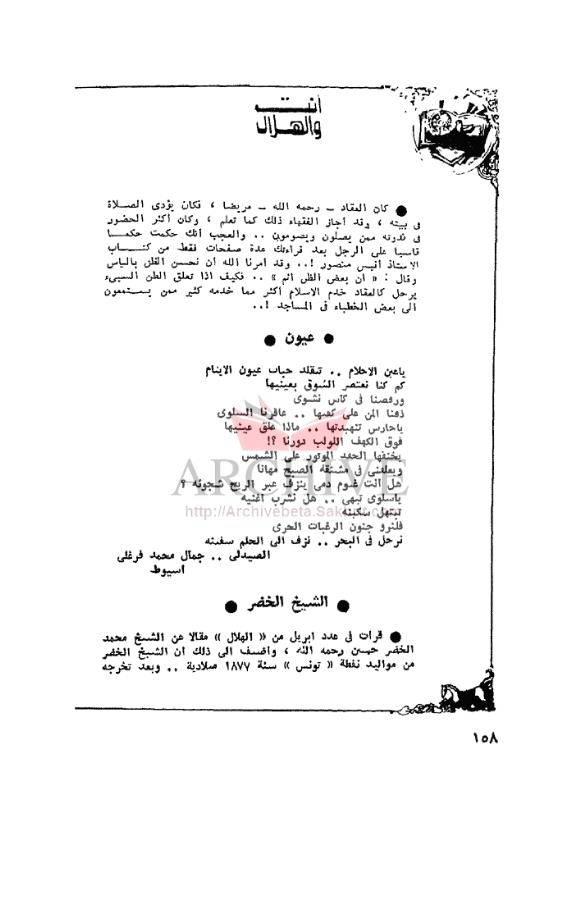 أنت
والهلال
● كان العقاد ــ رحمه الله ــ مريضا ، فكان يؤدى الصلاة
فى بيته ، وقد أجاز الفقهاء ذلك كما تعلم ، وكان أكثر الحضور
فى ندوته ممن يصلون ويصومون .. والعجب أنك حكمت حكما
قاسيا على الرجل بعد قراءتك عدة صفحات فقط من كتاب
الاستاذ أنيس منصور !.. وقد أمرنا الله أن نحسن الظن بالناس
وقال : « ان بعض الظن اثم » .. فكيف اذا تعلق الظن السيىء
برجل كالعقاد خدم الاسلام أكثر مما خدمه كثير ممن يستمعون
الى بعض الخطباء فى المساجد !..
● عيون ●
ياعين الاحلام .. تتقلد حبات عيون الايتام
كم كنا نعتصر الشوق بعينيها
ورقصنا فى كأس نشوى
ذقنا المن على كفها .. عاقرنا السلوى
ياحارس تنهيدتها .. ماذا علق عينيها
فوق الكهف اللولب دورنا ؟!
يخنقها الحقد الموتور على الشمس
ويعلقنى فى مشنقة الصبح مهانا
هل أنت هدوم دمى ينزف عبر الريح شجونه ؟
ياسلوى تبهى .. هل نشرب أغنيه
تبتهل سكينه
فلنرو جنون الرغبات الحرى
نرحل فى البحر .. نزف الى الحلم سفينه
الصيدلى .. جمال محمد فرغلى
أسيوط
● الشيخ الخضر ●
● قرأت فى عدد ابريل من « الهلال » مقالا عن الشيخ محمد
الخضر حسين رحمه الله ، وأضيف الى ذلك أن الشيخ الخضر
من مواليد نفطة « تونس » سنة ١٨٧٧ ميلادية .. وبعد تخرجه
١٥٨
ARCHIVE
http://Archivebeta.Sakhrit.com